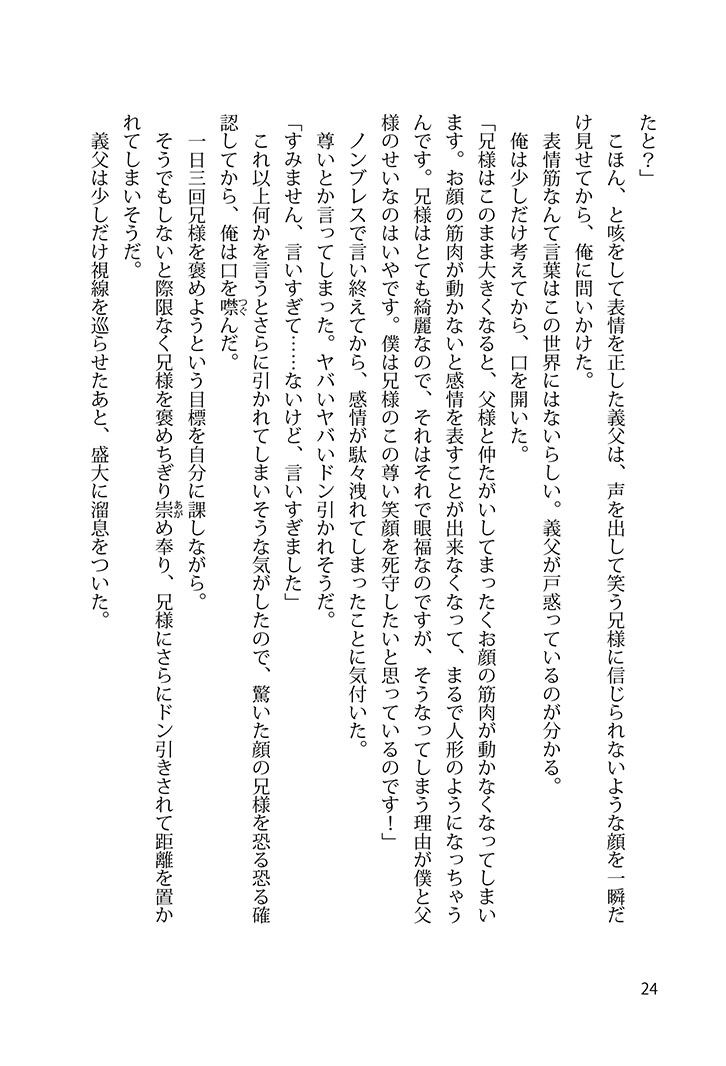 たと？」
　こほん、と咳をして表情を正した義父は、声を出して笑う兄様に信じられないような顔を一瞬だ
け見せてから、俺に問いかけた。
　表情筋なんて言葉はこの世界にはないらしい。義父が戸惑っているのが分かる。
　俺は少しだけ考えてから、口を開いた。
「兄様はこのまま大きくなると、父様と仲たがいしてまったくお顔の筋肉が動かなくなってしまい
ます。お顔の筋肉が動かないと感情を表すことが出来なくなって、まるで人形のようになっちゃう
んです。兄様はとても綺麗なので、それはそれで眼福なのですが、そうなってしまう理由が僕と父
様のせいなのはいやです。僕は兄様のこの尊い笑顔を死守したいと思っているのです！」
　ノンブレスで言い終えてから、感情が駄々洩れてしまったことに気付いた。
　尊いとか言ってしまった。ヤバいヤバいドン引かれそうだ。
「すみません、言いすぎて……ないけど、言いすぎました」
　これ以上何かを言うとさらに引かれてしまいそうな気がしたので、驚いた顔の兄様を恐る恐る確
認してから、俺は口を噤つぐんだ。
　一日三回兄様を褒めようという目標を自分に課しながら。
　そうでもしないと際限なく兄様を褒めちぎり崇あがめ奉り、兄様にさらにドン引きされて距離を置か
れてしまいそうだ。
　義父は少しだけ視線を巡らせたあと、盛大に溜息をついた。
24